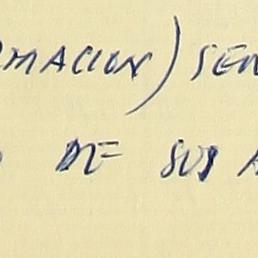 RMACION) SEN
DE SUS A